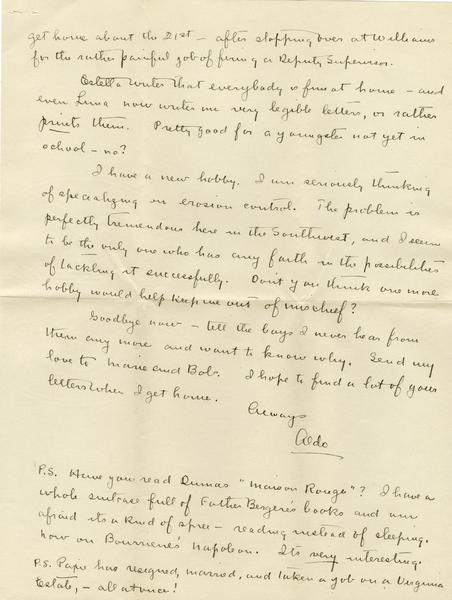 get home about the 21st — after stopping over at Williams
for the rather painful job of firing a Deputy Supervisor.
Estella writes that everybody is fine at home — and
even Luna now writes me very legible letters, or rather
prints them. Pretty good for a youngster not yet in
school — no?
I have a new hobby. I am seriously thinking
of specializing on erosion control. The problem is
perfectly tremendous here in the Southwest, and I seem
to be the only one who has any faith in the possibilities
of tackling it successfully. Don't you think one more
hobby would help keep me out of mischief?
Goodbye now — tell the boys I never hear from
them any more and want to know why. Send my
love to Marie and Bob. I hope to find a lot of your
letters when I get home.
Always
Aldo
P.S. Have you read Dumas "Maison Rouge"? I have a
whole suitcase full of Father Bergere's books and am
afraid its a kind of spree — reading instead of sleeping.
Now on Bourriene's Napoleon. Its very interesting.
P.S. Papie has resigned, married, and taken a job on a Virginia
Estate, — all at once!